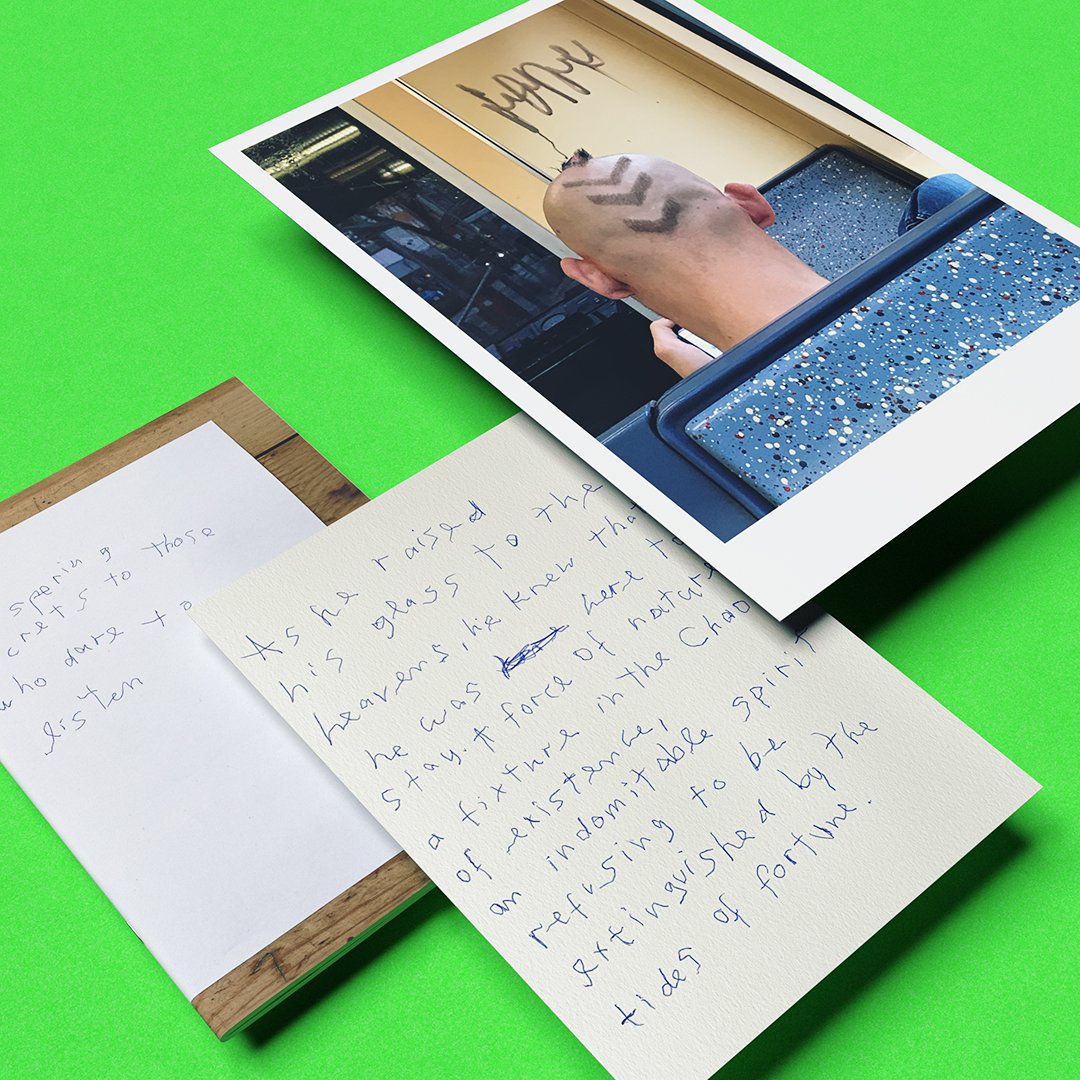 sperin g
crets to those
who dare to
listen
As he raised
his glass to the
heavens, he knew that
he was here to
stay. A force of nature
a fixture in the Chao
of existence,
an indomitable spirit
refusing to be
extinguished by the
tides of fortune.